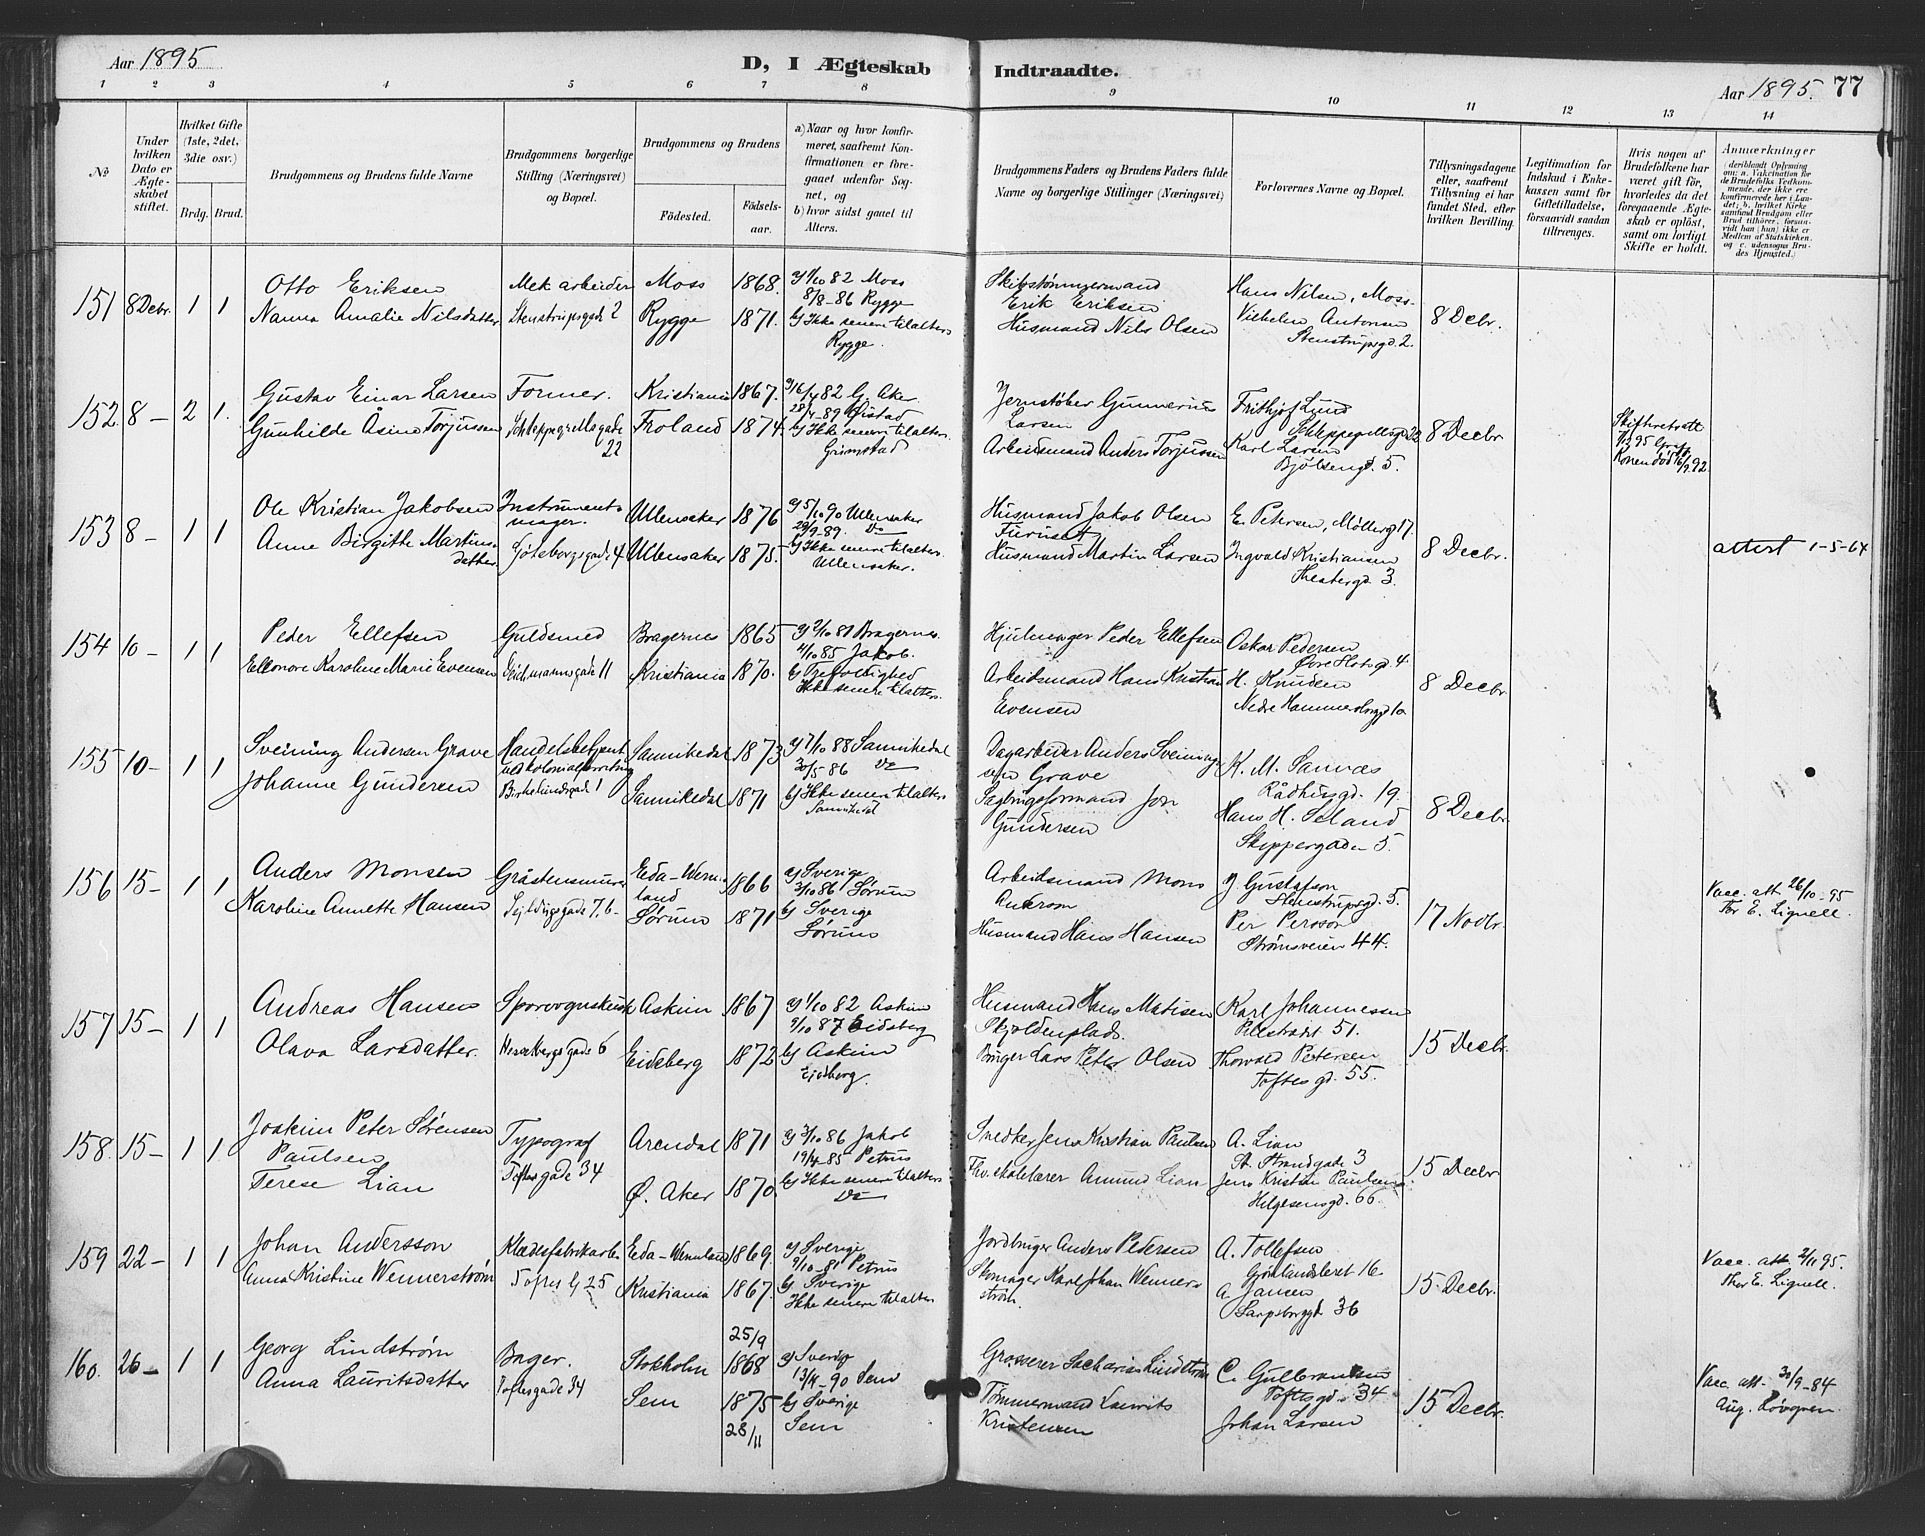 Aar 1895
D, I Ægteskab Indtraadte.
Aar 1895. 77
1 2 3 4 5 6 7 8 9 10 11 12 13 14
No
Under hvilken Dato er Ægteskabet stiftet.
Hvilket Gifte (1ste, 2det, 3die osv.)
Brdg. Brud.
Brudgommens og Brudens fulde Navne
Brudgommens borgerlige Stilling (Næringsvei) og Bopæl.
Brudgommens og Brudens
Fødested.
Fødselsaar.
a) Naar og hvor konfirmeret, saafremt Konfirmationen er foregaaet udenfor Sognet, og
b) hvor sidst gaaet til Alters.
Brudgommens Faders og Brudens Faders fulde Navne og borgerlige Stillinger (Næringsvei)
Forlovernes Navne og Bopæl.
Tillysningsdagene eller, saafremt Tillysning ei har fundet Sted, efter hvilken Bevilling.
Legitimation for Indskud i Enkekassen samt for Giftetilladelse, forsaavidt saadan tiltrænges.
Hvis nogen af Brudefolkene har været gift før, hvorledes da det foregaaende Ægteskab er opløst, samt om lovligt Skifte er holdt.
Anmærkninger
(deriblandt Oplysning om: a. Vakcination for de Brudefolks Vedkommende, der ikke ere konfirmerede her i Landet; b. hvilket Kirkesamfund Brudgom eller Brud tilhører, forsaavidt han (hun) ikke er Medlem af Statskirken, og c. udensogns Brudes Hjemsted.)
151 8 Debr. 1 1
Otto Eriksen
Mek arbeider
Moss 1868.
a) 1/10 82 Moss
Nanna Amalie Nilsdatter
Stenstrupsgade 2
Rygge 1871.
8/8-86 Rygge
b) Ikke senere til alters
Rygge.
Erik Eriksen
Husmand Nils Olsen
Hans Nilsen, Moss.
Vilhelm Antonsen
Stenstrupsgd. 2.
8 Debr.
152. 8 - 2 1.
Gustav Einar Larsen
Former.
Kristiania 1867.
a) 16/4 82 G. Aker.
Gunhilde Åsine Torjussen
Schleppegrellsgade 22
Froland 1874.
28/4-89 Øistad
b) Ikke senere til alters.
Grimstad
Jernstøber Gunnerius Larsen
Arbeidsmand Anders Torjussen
Frithjof Lund
Schleppegrellsgd 22
Karl Larsen
Bjølsengd. 5.
8 Decbr
Skifteretsatt
Konen død 16/9 92.
153 8 - 1 1
Ole Kristian Jakobsen
Instrumentmager.
Ullensaker 1876
a) 5/10 90 Ullensaker
Anne Birgitte Martinsdatter
Göteborgsgad. 4
Ullensaker 1875.
29/9-89. Do
b) Ikke senere til alters.
Ullensaker.
Husmand Jakob Olsen Furuset
Husmand Martin Larsen
E. Petersen, Møllergd 17.
Ingvald Kristiansen
Theatergd. 3.
8 Decbr.
attest 1-5-64
154 10 - 1 1
Peder Ellefsen
Guldsmed
Bragernes 1865
a) 2/10 81 Bragernes.
Ellenore Karoline Marie Evensen
Deichmannsgade 11
Kristiania 1870.
4/10 85 Jakob.
b) Trefoldighed
Ikke senere til alters.
Hjulmager Peder Ellefsen
Arbeidsmand Hans Kristian Evensen
Oskar Pedersen
Øvre Slotsgd. 4.
H. Knudsen
Nedre Hammersborggd 10
8 Decbr.
155 10 - 1 1
Sveining Andersen Grave
Handelsbetjent ved kolonialforretning
Sannikedal 1873
a) 7/10 88 Sannikedal
Johanne Gundersen
Birkelundsgade 1
Sannikedal 1871
30/5-86 Do
b) Ikke senere til alters.
Sannikedal
Dagarbeider Anders Sveiningsen Grave
Sagbrugsformand Jon Gundersen
K. M. Sannæs
Rådhusgd. 19.
Hans H. Seland
Skippergaden 5.
8 Decbr.
156 15 - 1 1
Anders Monsen
Gråstensmurer
Eda-Wermland 1866
a) Sverige
Karoline Annette Hansen
Sejldugsgade 7, b-
Sørum 1871
3/10 86 Sørum
b) Sverige
Sørum
Arbeidsmand Mons
Husmand Hans Hansen
J. Gustafson
Stenstrupsgd. 5.
Per Persson
Strømsveien 44.
17 Novbr.
Vacc. att. 26/10-95
Thor E. Lignell.
157 15 - 1 1
Andreas Hansen
Sporvognskusk
Askim 1867
a) 1/10 82 Askim
Olava Larsdatter.
Herslebsgade 6
Eidsberg 1872
9/10 87 Eidsberg
b) Askim
Ejdsberg.
Husmand Hans Matisen Skjoldenplads.
Lars Peter Olsen
Karl Johannessen
Pilestrædt 51.
Thorvald Petersen
Toftesgd. 55.
15 Decbr.
158. 15 - 1 1
Joakim Peter Sørensen Paulsen
Typograf
Arendal 1871
a) 3/10 86 Jakob
Terese Lian
Toftesgade 34
Ø. Aker 1870.
19/4-85 Petrus
b) Ikke senere til alters
Do
Snedker Jens Kristian Paulsen
Fhv. skolelærer Amund Lian
A. Lian
St. Strandgade 3
Jens Kristian Paulsen
Helgesensgd. 66.
15 Decbr
159 22 - 1 1
Johan Andersson
Klædesfabrikarb.
Eda-Wermland 1869.
a) Sverige
Anna Kristine Wennerstrøm
Toftes G 25
Kristiania 1867.
9/10-81 Petrus
b) Sverige
Ikke senere til alters.
Jordbruger Anders Pedersen
Skomager Karl Johan Wennerstrøm.
A. Tollefsen
Grønlandsleret 16.
A. Jansen
Sarpsborggd 36
15. Decbr.
Vacc. att. 2/11 95.
Thor E. Lignell.
160. 26 - 1 1
Georg Lindstrøm
Bager.
Stokholm 25/9 1868
a) Sverige
Anna Lauritsdatter
Toftesgade 34
Sem 1875 28/11
13/4-90 Sem
b) Sverige
Sem
Grosserer Sacharias Lindstrøm
Tømmermand Laurits Kristensen
C. Gulbransen
Toftesgd. 34
Johan Larsen
15 Decbr.
Vacc. att. 30/9-84
Aug. Lövgren.